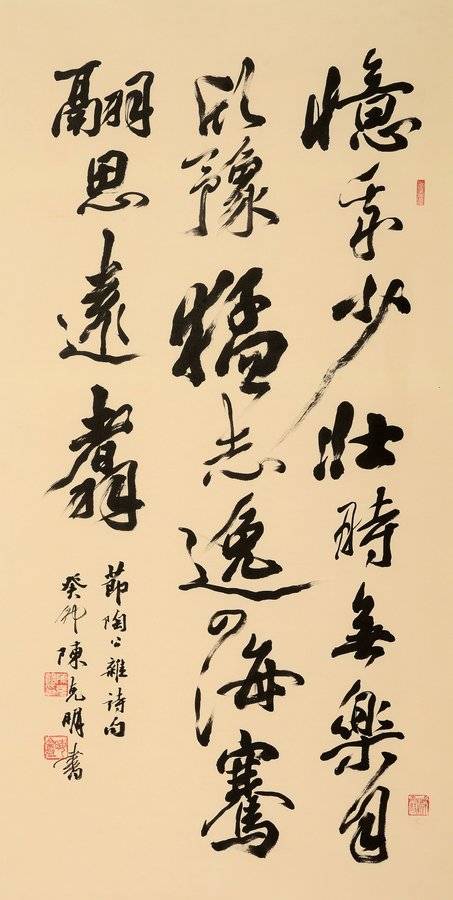 憶我少壯時無樂自
欣豫猛志逸四海騫
翮思遠翥
節陶公雜詩句
癸卯陳克明書